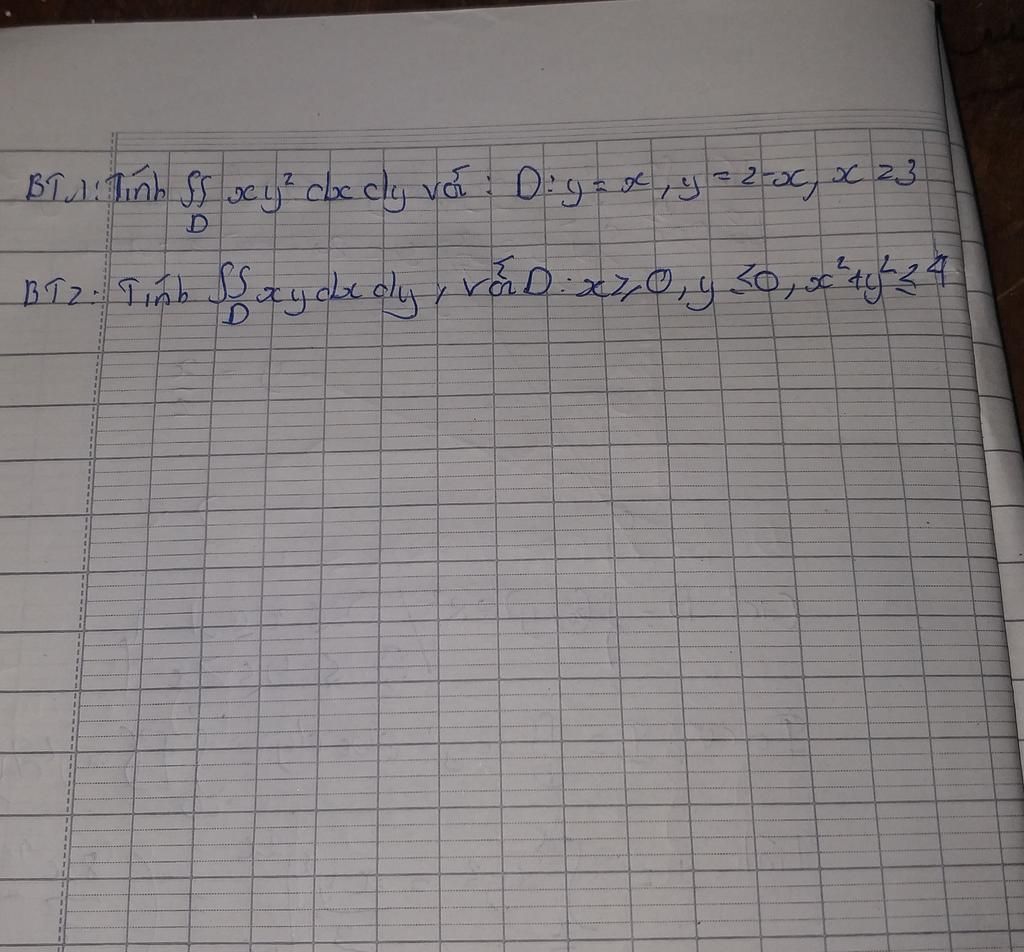 BT1: Tính ∬ xy² dx dy với : D: y = x, y = 2-x, x = 3
D
BT2: Tính ∬ xy dx dy, với D: x ≥ 0, y ≤ 0, x² + y² ≤ 4
D